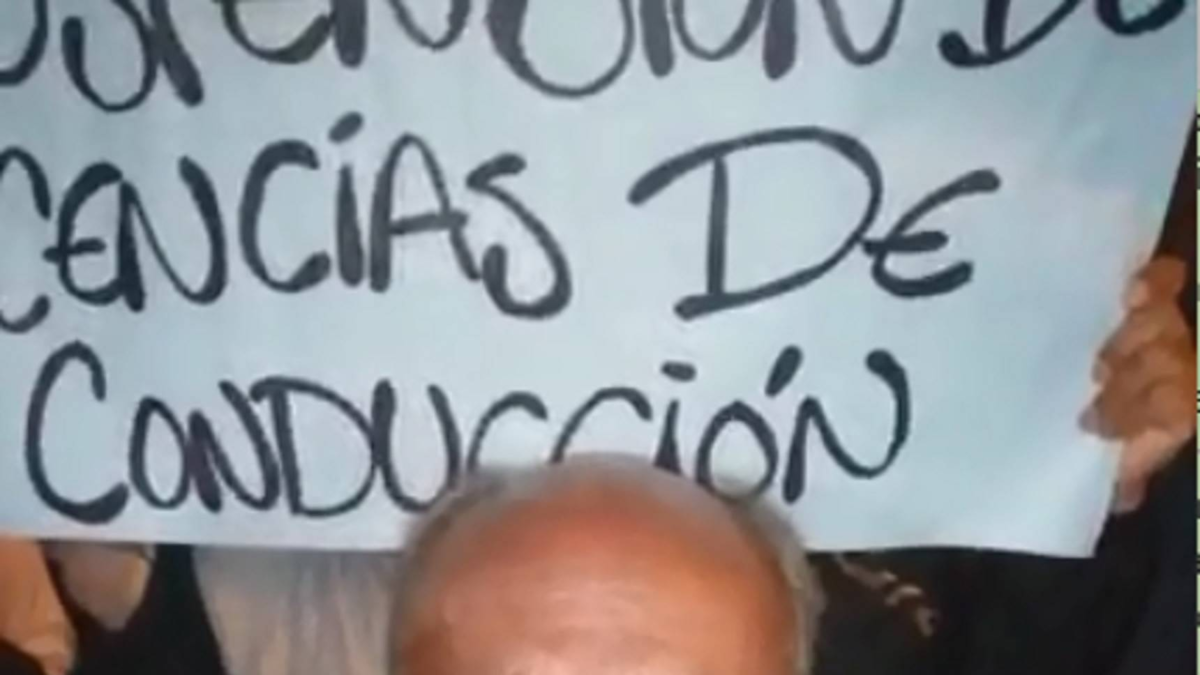 USPENCIÓN DE
CENCIAS DE
CONDUCCIÓN